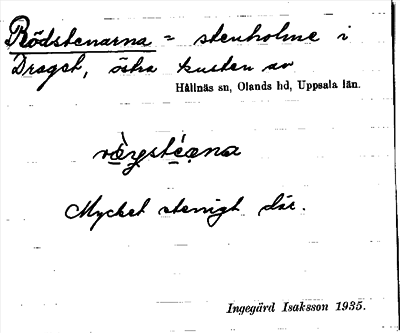 Rödstenarna = stenholme i
Draget, östra kusten av
Hållnäs sn, Olands hd, Uppsala län.
Mycket stenigt där.
Ingegärd Isaksson 1935.